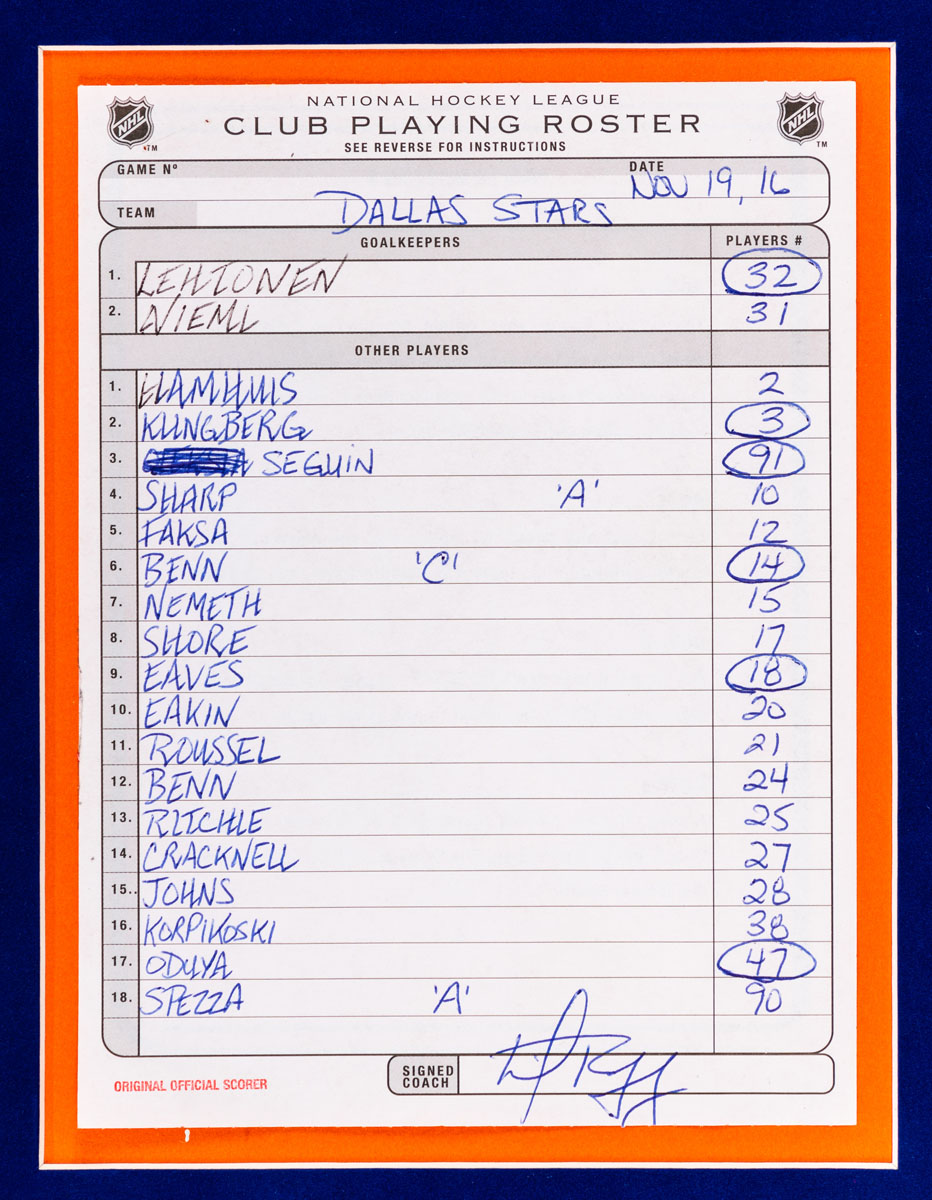 NATIONAL HOCKEY LEAGUE
NHL TM CLUB PLAYING ROSTER NHL TM
SEE REVERSE FOR INSTRUCTIONS
GAME Nº DATE NOV 19, 16
TEAM DALLAS STARS
GOALKEEPERS PLAYERS #
1. LEHTONEN 32
2. NIEMI 31
OTHER PLAYERS
1. HAMHUIS 2
2. KLINGBERG 3
3. SEGUIN 91
4. SHARP 'A' 10
5. FAKSA 12
6. BENN 'C' 14
7. NEMETH 15
8. SHORE 17
9. EAVES 18
10. EAKIN 20
11. ROUSSEL 21
12. BENN 24
13. RITCHIE 25
14. CRACKNELL 27
15. JOHNS 28
16. KORPIKOSKI 38
17. ODUYA 47
18. SPEZZA 'A' 90
SIGNED COACH
ORIGINAL OFFICIAL SCORER